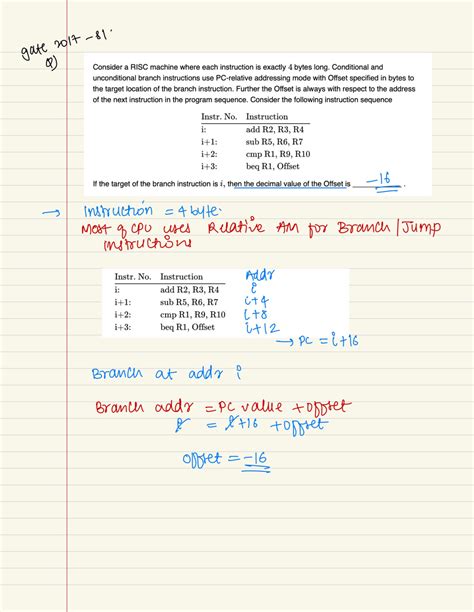 gate 2017 - S1
Q)
Consider a RISC machine where each instruction is exactly 4 bytes long. Conditional and
unconditional branch instructions use PC-relative addressing mode with Offset specified in bytes to
the target location of the branch instruction. Further the Offset is always with respect to the address
of the next instruction in the program sequence. Consider the following instruction sequence
Instr. No. Instruction
i: add R2, R3, R4
i+1: sub R5, R6, R7
i+2: cmp R1, R9, R10
i+3: beq R1, Offset
If the target of the branch instruction is i, then the decimal value of the Offset is -16.
→ Instruction = 4 byte.
Most of CPU uses Relative AM for Branch | Jump
instructions
Instr. No. Instruction Addr
i: add R2, R3, R4 i
i+1: sub R5, R6, R7 i+4
i+2: cmp R1, R9, R10 i+8
i+3: beq R1, Offset i+12
→ PC = i+16
Branch at addr i
Branch addr = PC value + offset
i = i+16 + offset
offset = -16